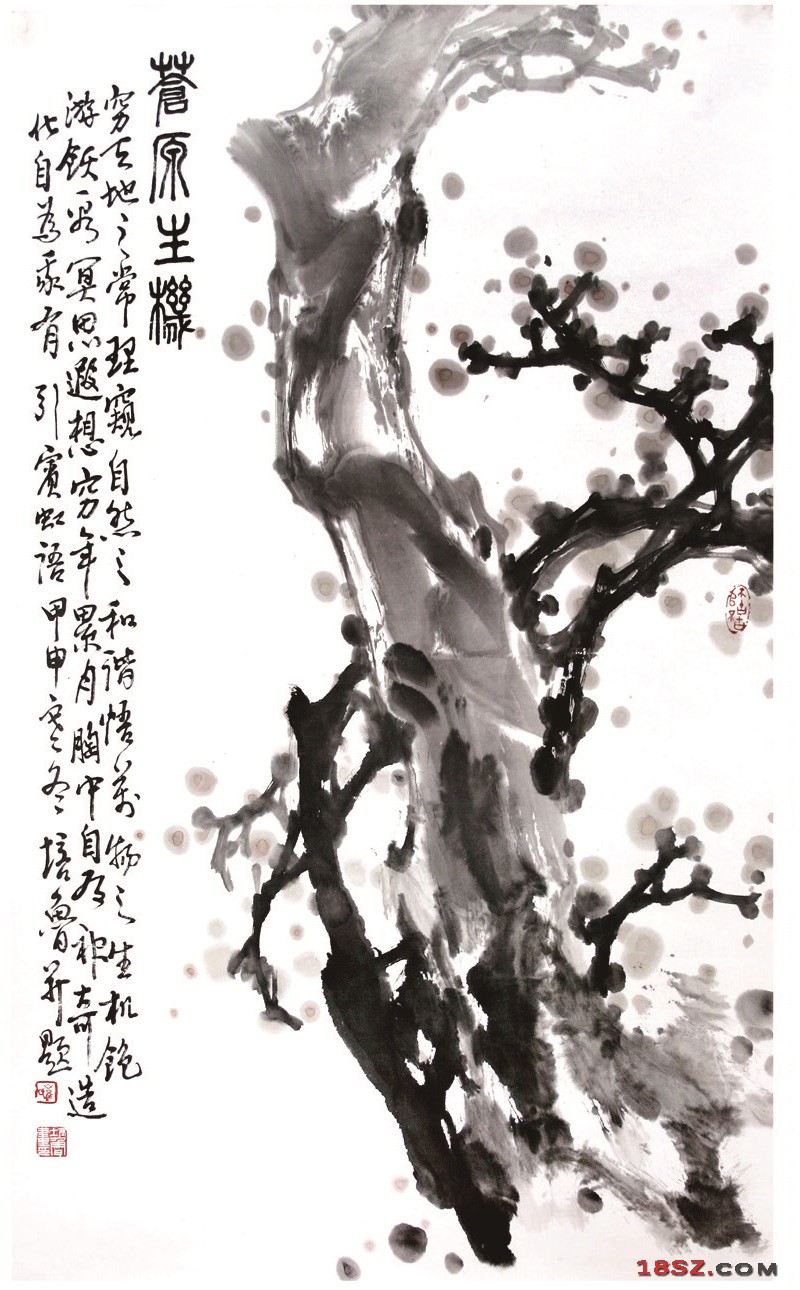 蒼原生機
穷天地之常理窺自然之和諧悟萬物之生机飽
游飫看冥思遐想穷年累月胸中自有神奇造
化自為我有引賓虹語甲申寒冬培魯并題
18SZ.COM